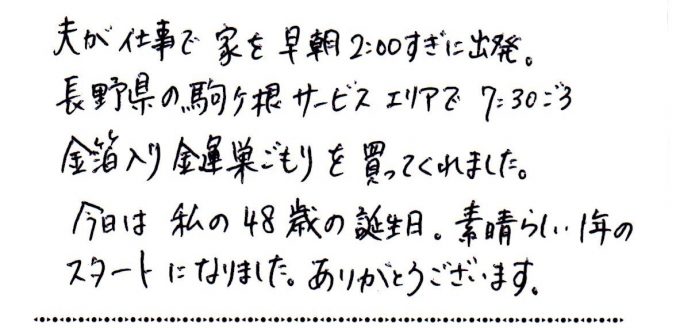 夫が仕事で家を早朝2:00すぎに出発。
長野県の駒ヶ根サービスエリアで7:30ごろ
金箔入り金運巣ごもりを買ってくれました。
今日は私の48歳の誕生日。素晴らしい1年の
スタートになりました。ありがとうございます。